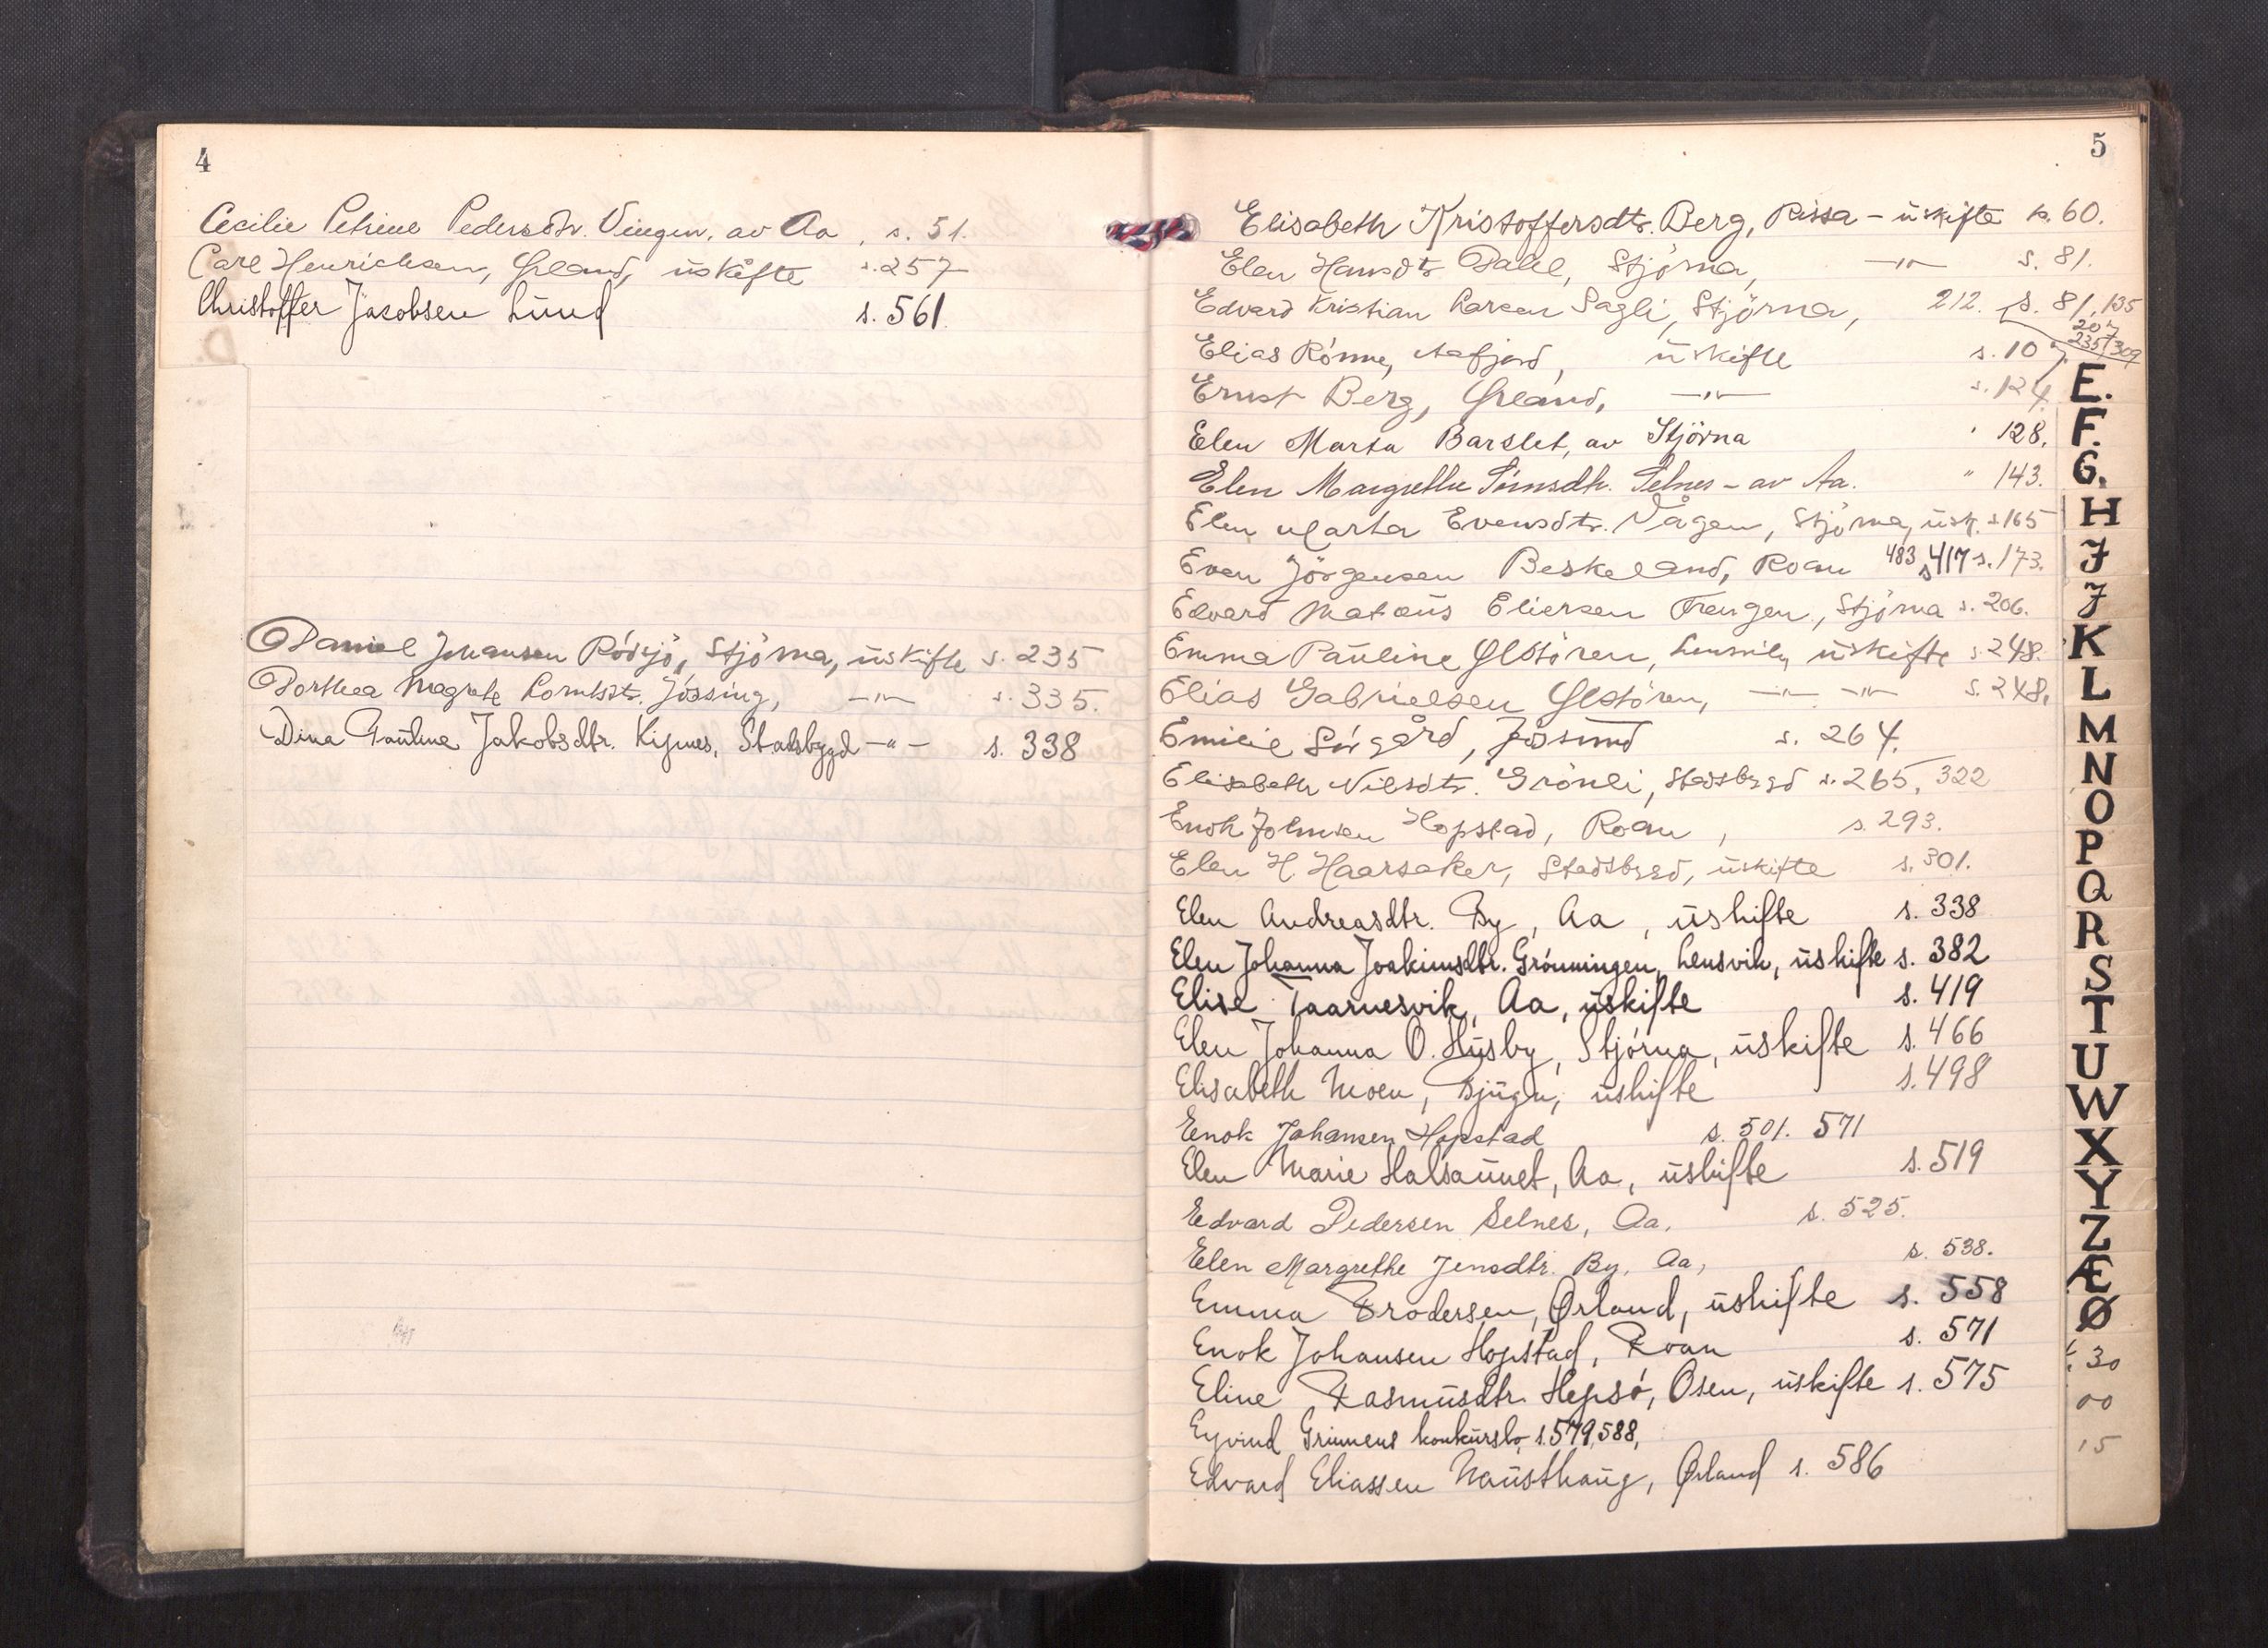 4
Cecilie Petrine Pedersdtr. Vingen, av Aa, s. 51.
Carl Henriksen, Ørland, uskifte s. 257
Christoffer Jacobsen Lund s. 561.
Daniel Johansen Rödsjö, Stjörna, uskifte s. 235
Dorthea Magrete Lorntsdtr. Jössing, -"- s. 335.
Dina Pauline Jakobsdtr. Kignes, Stadsbygd -"- s. 338
5
Elisabeth Kristoffersdtr. Berg, Rissa - uskifte s. 60.
Elen Hansdtr Dahl, Stjörna, -"- s. 81.
Edvard Kristian Larsen Sagli, Stjörna, 212. s. 81, 135
207
235, 309
Elias Rönne, Aafjord, uskifte s. 107.
Ernst Berg, Ørland, -"- s. 124.
Elen Marta Barslet, av Stjörna 128.
Elen Margrethe Selnes - av Aa. " 143.
Elen Marta Evensdtr. Vågan, Stjörna, usk. s 165
Even Jörgensen Beskeland, Roan 483 s 417 s. 173.
Edvard Mataus Eliersen Trengen, Stjörna s. 206.
Emma Pauline Ølstören, uskifte s 248.
Elias Gabrielsen Ølstören, -"- -"- s. 248.
Emilie Sörgård, Jössund s. 264.
Elisabeth Nilsdtr. Grönli, Stadsbygd s. 265, 322
Enok Johnsen Hopstad, Roan, s. 293.
Elen H. Haarsaker, Stadsbygd, uskifte s. 301.
Elen Andreasdtr. By, Aa, uskifte s. 338
Elen Johanna Joakimsdtr. Grönningen, Lensvik, uskifte s. 382
Elise Taarnesvik, Aa, uskifte s. 419
Elen Johanna O. Husby, Stjörna, uskifte s. 466
Elisabeth Moen, Bjugn, uskifte s. 498
Enok Johansen Hopstad s. 501. 571
Elen Marie Halsaunet, Aa, uskifte s. 519
Edvard Pedersen Selnes, Aa. s. 525.
Elen Margrethe Jensdtr. By, Aa, s. 538.
Emma Brodersen, Ørland, uskifte s. 558
Enok Johansen Hopstad, Roan s. 571
Eline Rasmusdtr. Hepsö, Osen, uskifte s. 575
Eyvind Grinnens konkursbo s. 579, 588,
Edvard Eliassen Nausthaug, Ørland s. 586
E.
F.
G.
H
I
J
K
L
M
N
O
P
Q
R
S
T
U
W
X
Y
Z
Æ
Ø
30
00
15